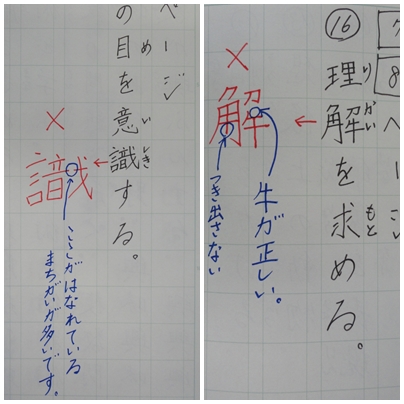 ページ
の目を意識する。
め
い
しき
×
識
ここがはなれている
まちがいが多いです。
⑯
理解を求める。
り
かい
もと
8ページ
×
解
牛が正しい。
つき出さない